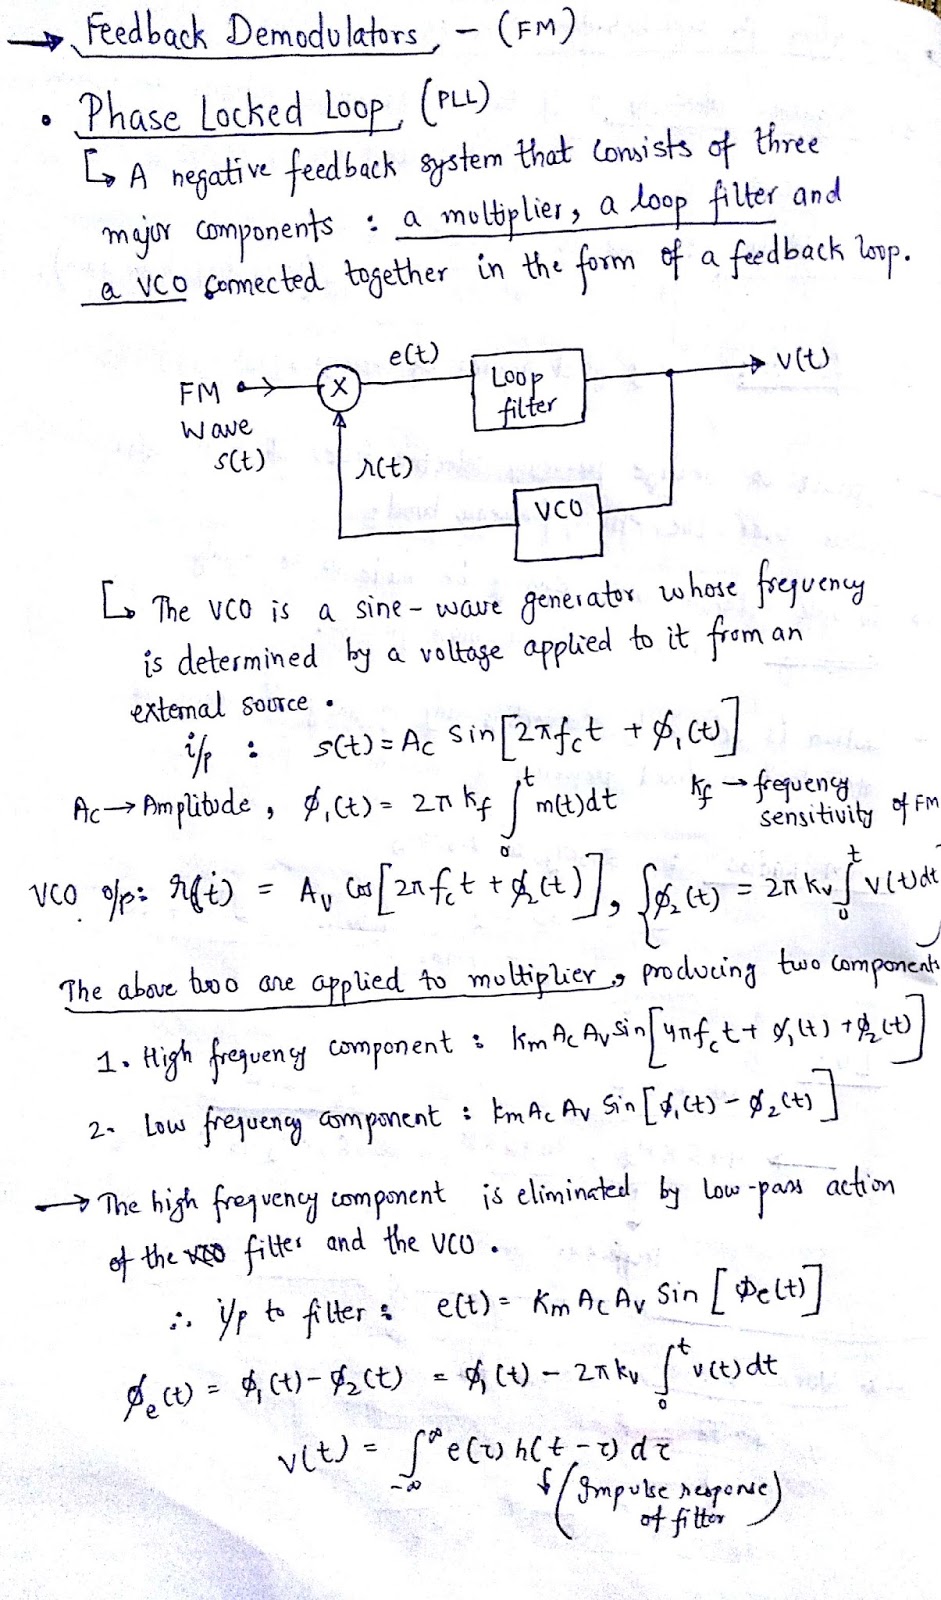 → Feedback Demodulators, - (FM)
• Phase Locked Loop, (PLL)
↳ A negative feedback system that consists of three
major components : a multiplier, a loop filter and
a VCO connected together in the form of a feedback loop.
e(t)
FM
Wave
s(t)
X
Loop
filter
v(t)
r(t)
VCO
↳ The VCO is a sine-wave generator whose frequency
is determined by a voltage applied to it from an
external source.
i/p : s(t) = Ac sin[2πfct + φ₁(t)]
Ac → Amplitude, φ₁(t) = 2π kf ∫₀ᵗ m(t)dt kf → frequency
sensitivity of FM
VCO o/p: r(t) = Av Cos[2πfct + φ₂(t)], {φ₂(t) = 2π kv ∫₀ᵗ v(t)dt}
The above two are applied to multiplier, producing two components
1. High frequency component : km Ac Av sin[4πfct + φ₁(t) + φ₂(t)]
2. Low frequency component : km Ac Av Sin[φ₁(t) - φ₂(t)]
→ The high frequency component is eliminated by low-pass action
of the filter and the VCO.
∴ i/p to filter : e(t) = Km Ac Av Sin[φe(t)]
φe(t) = φ₁(t) - φ₂(t) = φ₁(t) - 2π kv ∫₀ᵗ v(t)dt
v(t) = ∫₋∞^∞ e(τ) h(t - τ) dτ
↓ (Impulse response)
of filter